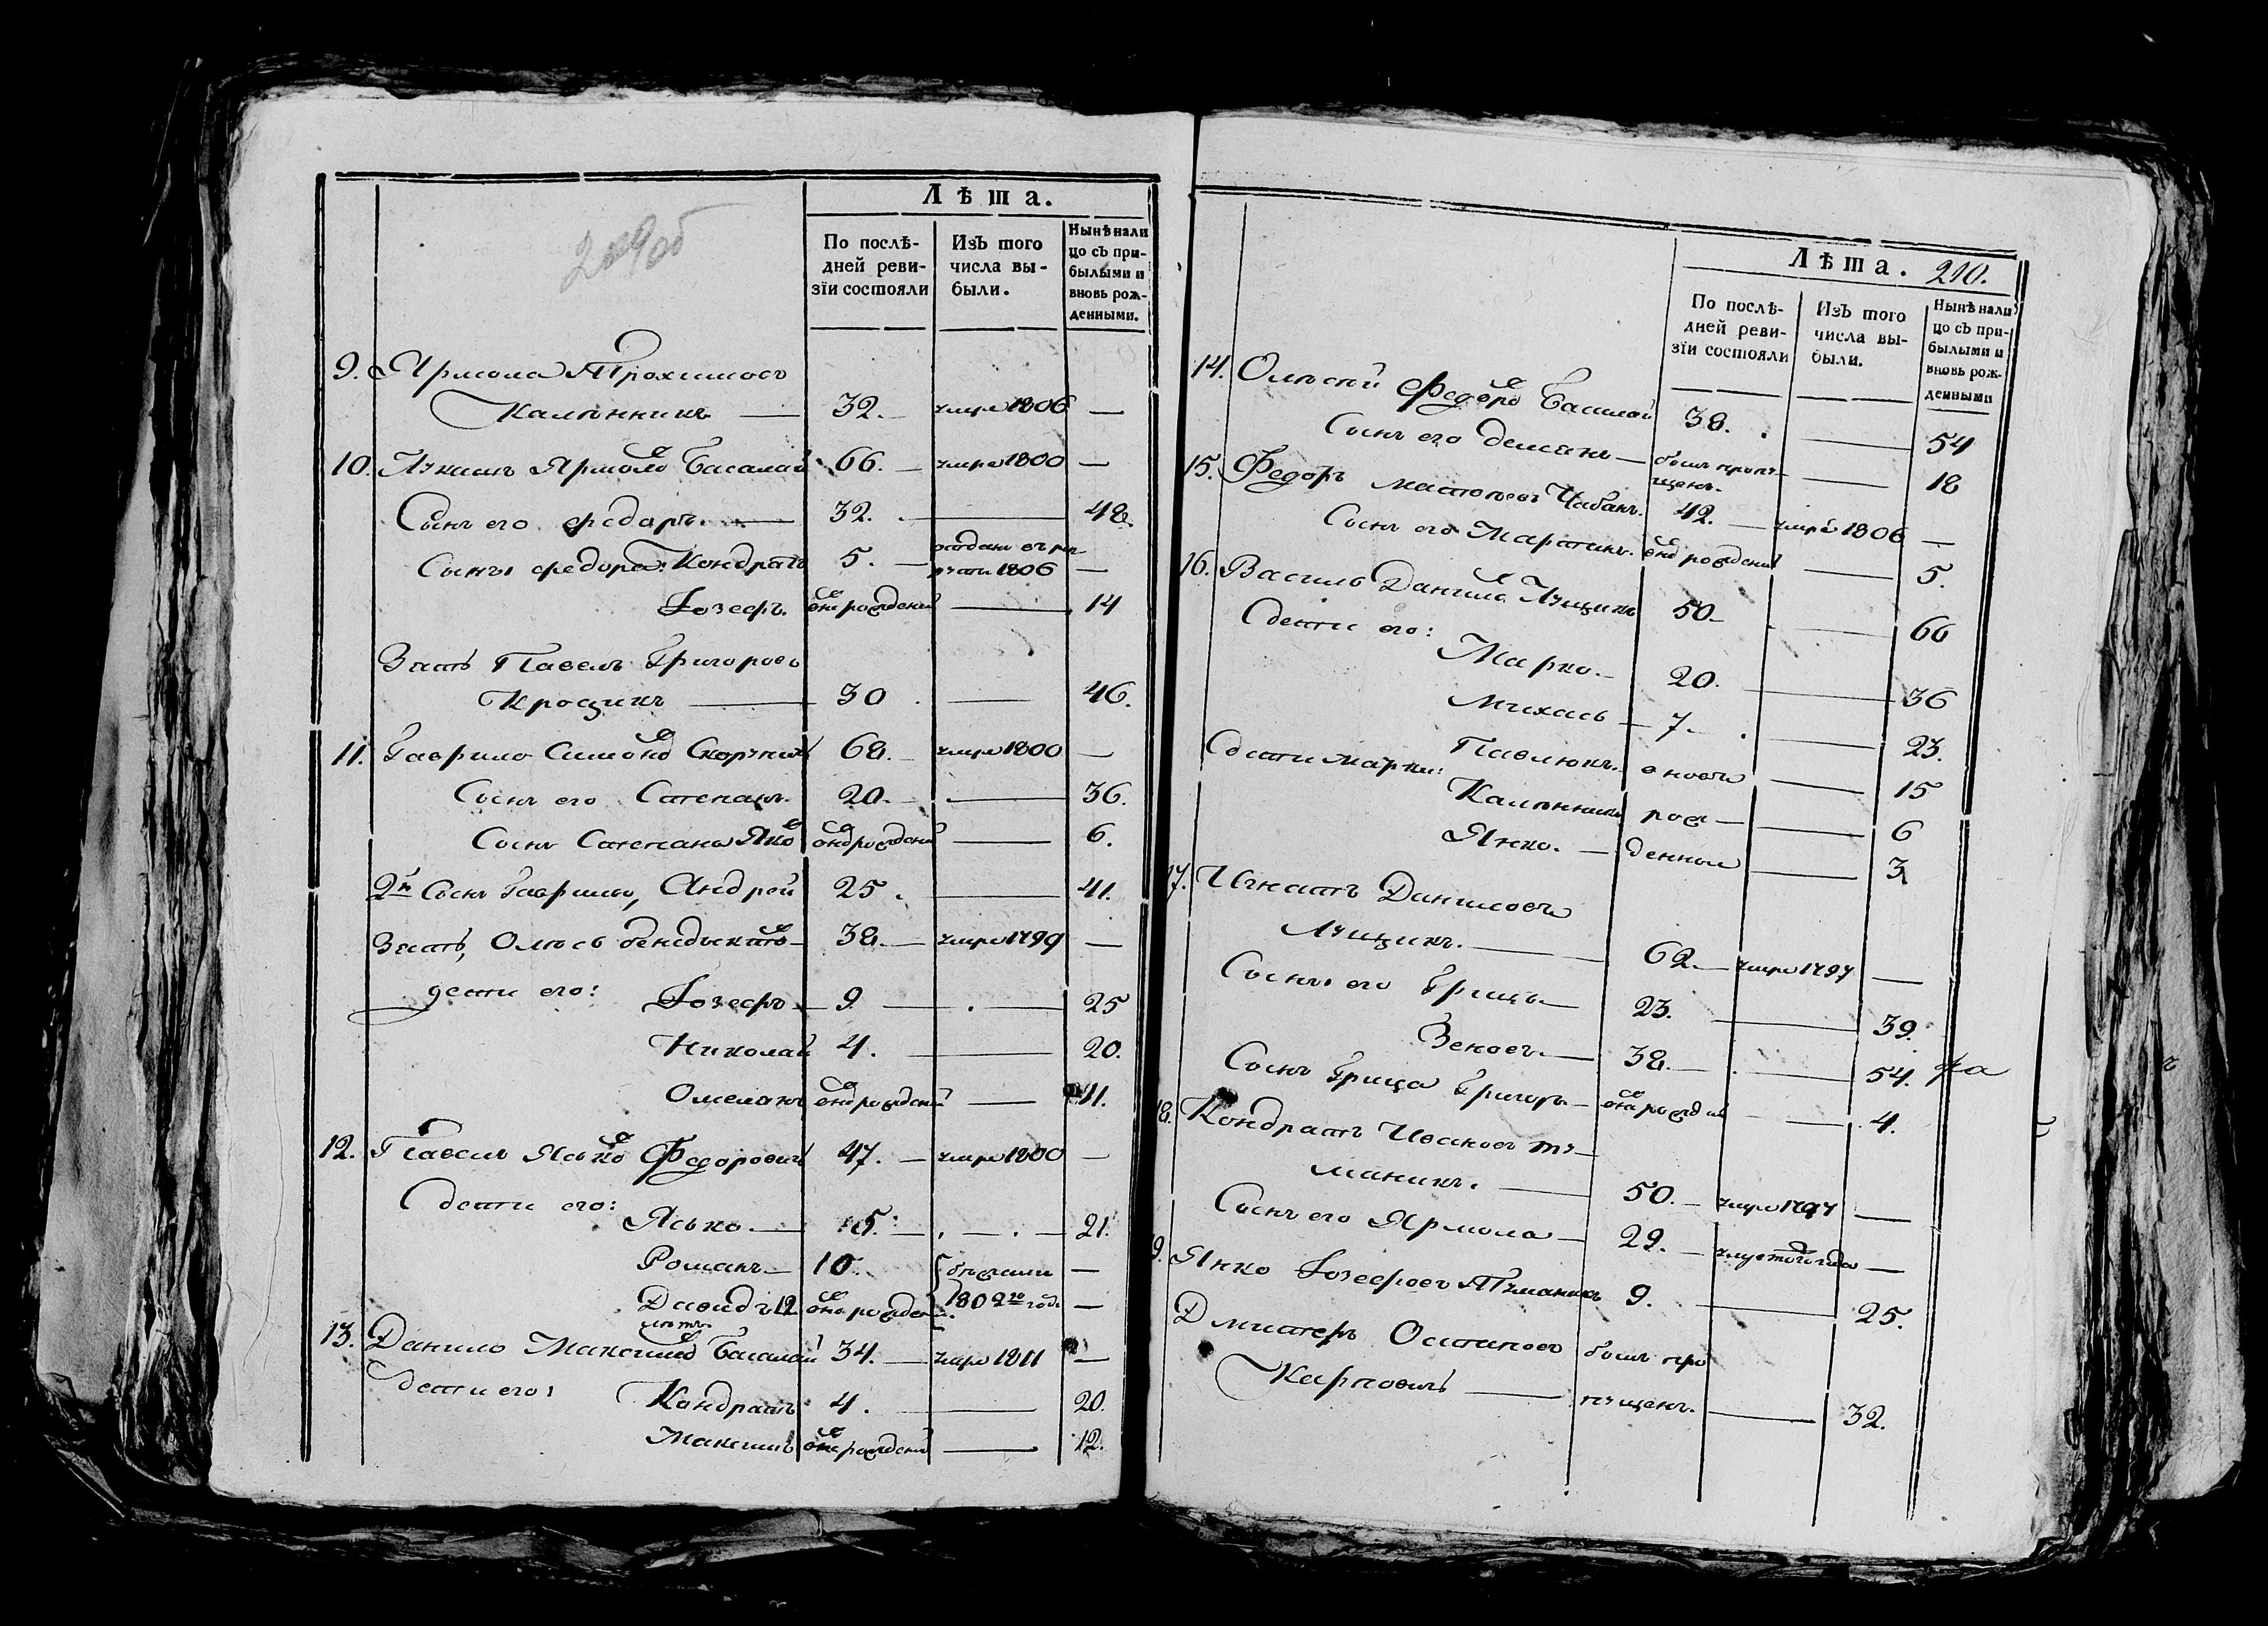 209об
Лѣта.
По послѣ-
дней реви-
зїи состояли
Изъ того
числа вы-
были.
Нынѣ нали
цо съ при-
былыми и
вновь рож-
денными.
9. Ярмола Трохимовъ
Калѣнникъ — 32. — умре 1806 —
10. Лукашъ Ярмоловъ Басалай 66. — умре 1800 —
Сынъ его Федоръ. — 32. — 48.
Сыны Федора: Кондратъ 5. — отданъ въ рек-
руты 1806 —
Іозефъ. вновь рожденный — 14
Зять Павелъ Григоровъ
Кросчикъ — 30 . — 46.
11. Гаврило Симоновъ 68. — умре 1800 —
Сынъ его Степанъ. 20. — 36.
Сынъ Степана Яковъ вновь рожденный — 6.
2й Сынъ Гаврилы, Андрей 25. — 41.
Зять, Олесь Бенедыктовъ — 38. — умре 1799 —
дети его: Іозефъ — 9 — . — 25
Николай 4. — 20.
Омелянъ вновь рожденный — 11.
12. Павелъ Яськовъ Федоровичъ 47. — умре 1800 —
дети его:
Ясько. — 15. — . — . — 21.
Романъ — 10. бежали —
Давидъ 12 вновь рожден. 1802го года —
лѣтъ.
13. Данило Максимовъ Басалай 34. — умре 1811 —
дети его: Кондратъ 4. — 20.
Максимъ вновь рожденный — 12.
Лѣта. 210.
По послѣ-
дней реви-
зїи состояли
Изъ того
числа вы-
были.
Нынѣ нали
цо съ при-
былыми и
вновь рож-
денными
14. Олексей Федоровъ Басалай 38. . — 54
Сынъ его Демянъ — былъ пропу-
щенъ. — 18
15. Федоръ Чабанъ. 42. — умре 1806 —
Сынъ его Мартинъ. вновь рожденный — 5.
16. Василь Даниловъ Лущикъ 50. — 66
дети его:
Марко. — 20. — 36
Михась — 7. . — 23.
дети Марки: Павлюкъ. вновь — 15
Калѣнникъ рож — 6
Янко. — денные — 3
17. Игнатъ Даниловъ
Лущикъ. — 62. — умре 1797 —
Сыны его Грицъ — 23. — 39.
Зеновъ — 38. — . — 54.
Сынъ Грица Григоръ — вновь рожден — 4.
18. Кондратъ Ивановъ Ту-
маникъ. — 50. — умре 1797 —
Сынъ его Ярмола — 29. — —
19. Янко Іозефовъ Туманикъ 9. — 25.
Дмитеръ Остаповъ былъ про
Карповичъ — пущенъ. — 32.